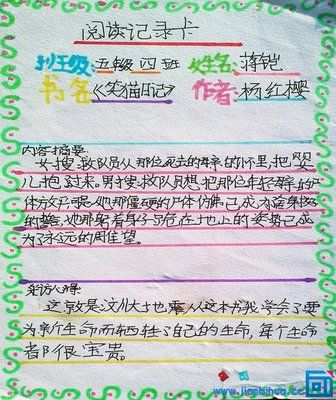 阅读记录卡
班级:五级四班 姓名:蒋铠
书名《笑猫日记》 作者:杨红樱
内容摘要:
女搜救队员从那位死去的母亲的怀里,把婴
儿抱过来。男搜救队员想把那位年轻母亲的尸
体放平,可是她那僵硬的尸体仿佛已成为
的 她那 着身子 在地上的姿势已成
为了永远的
这 是汶川大地震从这本书我学会了要
为 个生命而牺牲了自己的生命,每个生命
者都很宝贵。
www.jianbihua.c